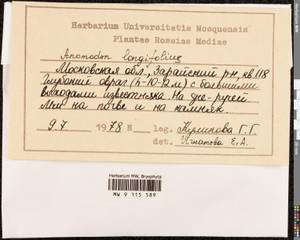 Herbarium Universitatis Mosquensis
Plantae Rossiae Mediae
Anomodon longifolius
Московская обл., Зарайский р-н, кв. 118
Глубокий овраг (4-10-12 м) с большими
выходами известняка. На дне - ручей
Мхи на почве и на камнях.
9.7 1978 N leg. Куликова Г.Г.
det. Игнатова Е.А.
Herbarium MW, Bryophyta
MW 9 115 589